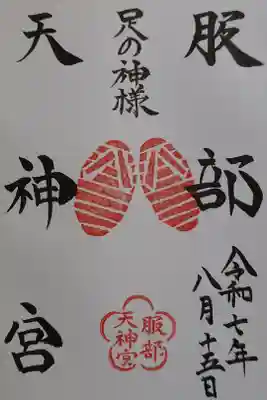 足の神様
服部
天神宮
令和七年
八月十五日
服部
天神宮